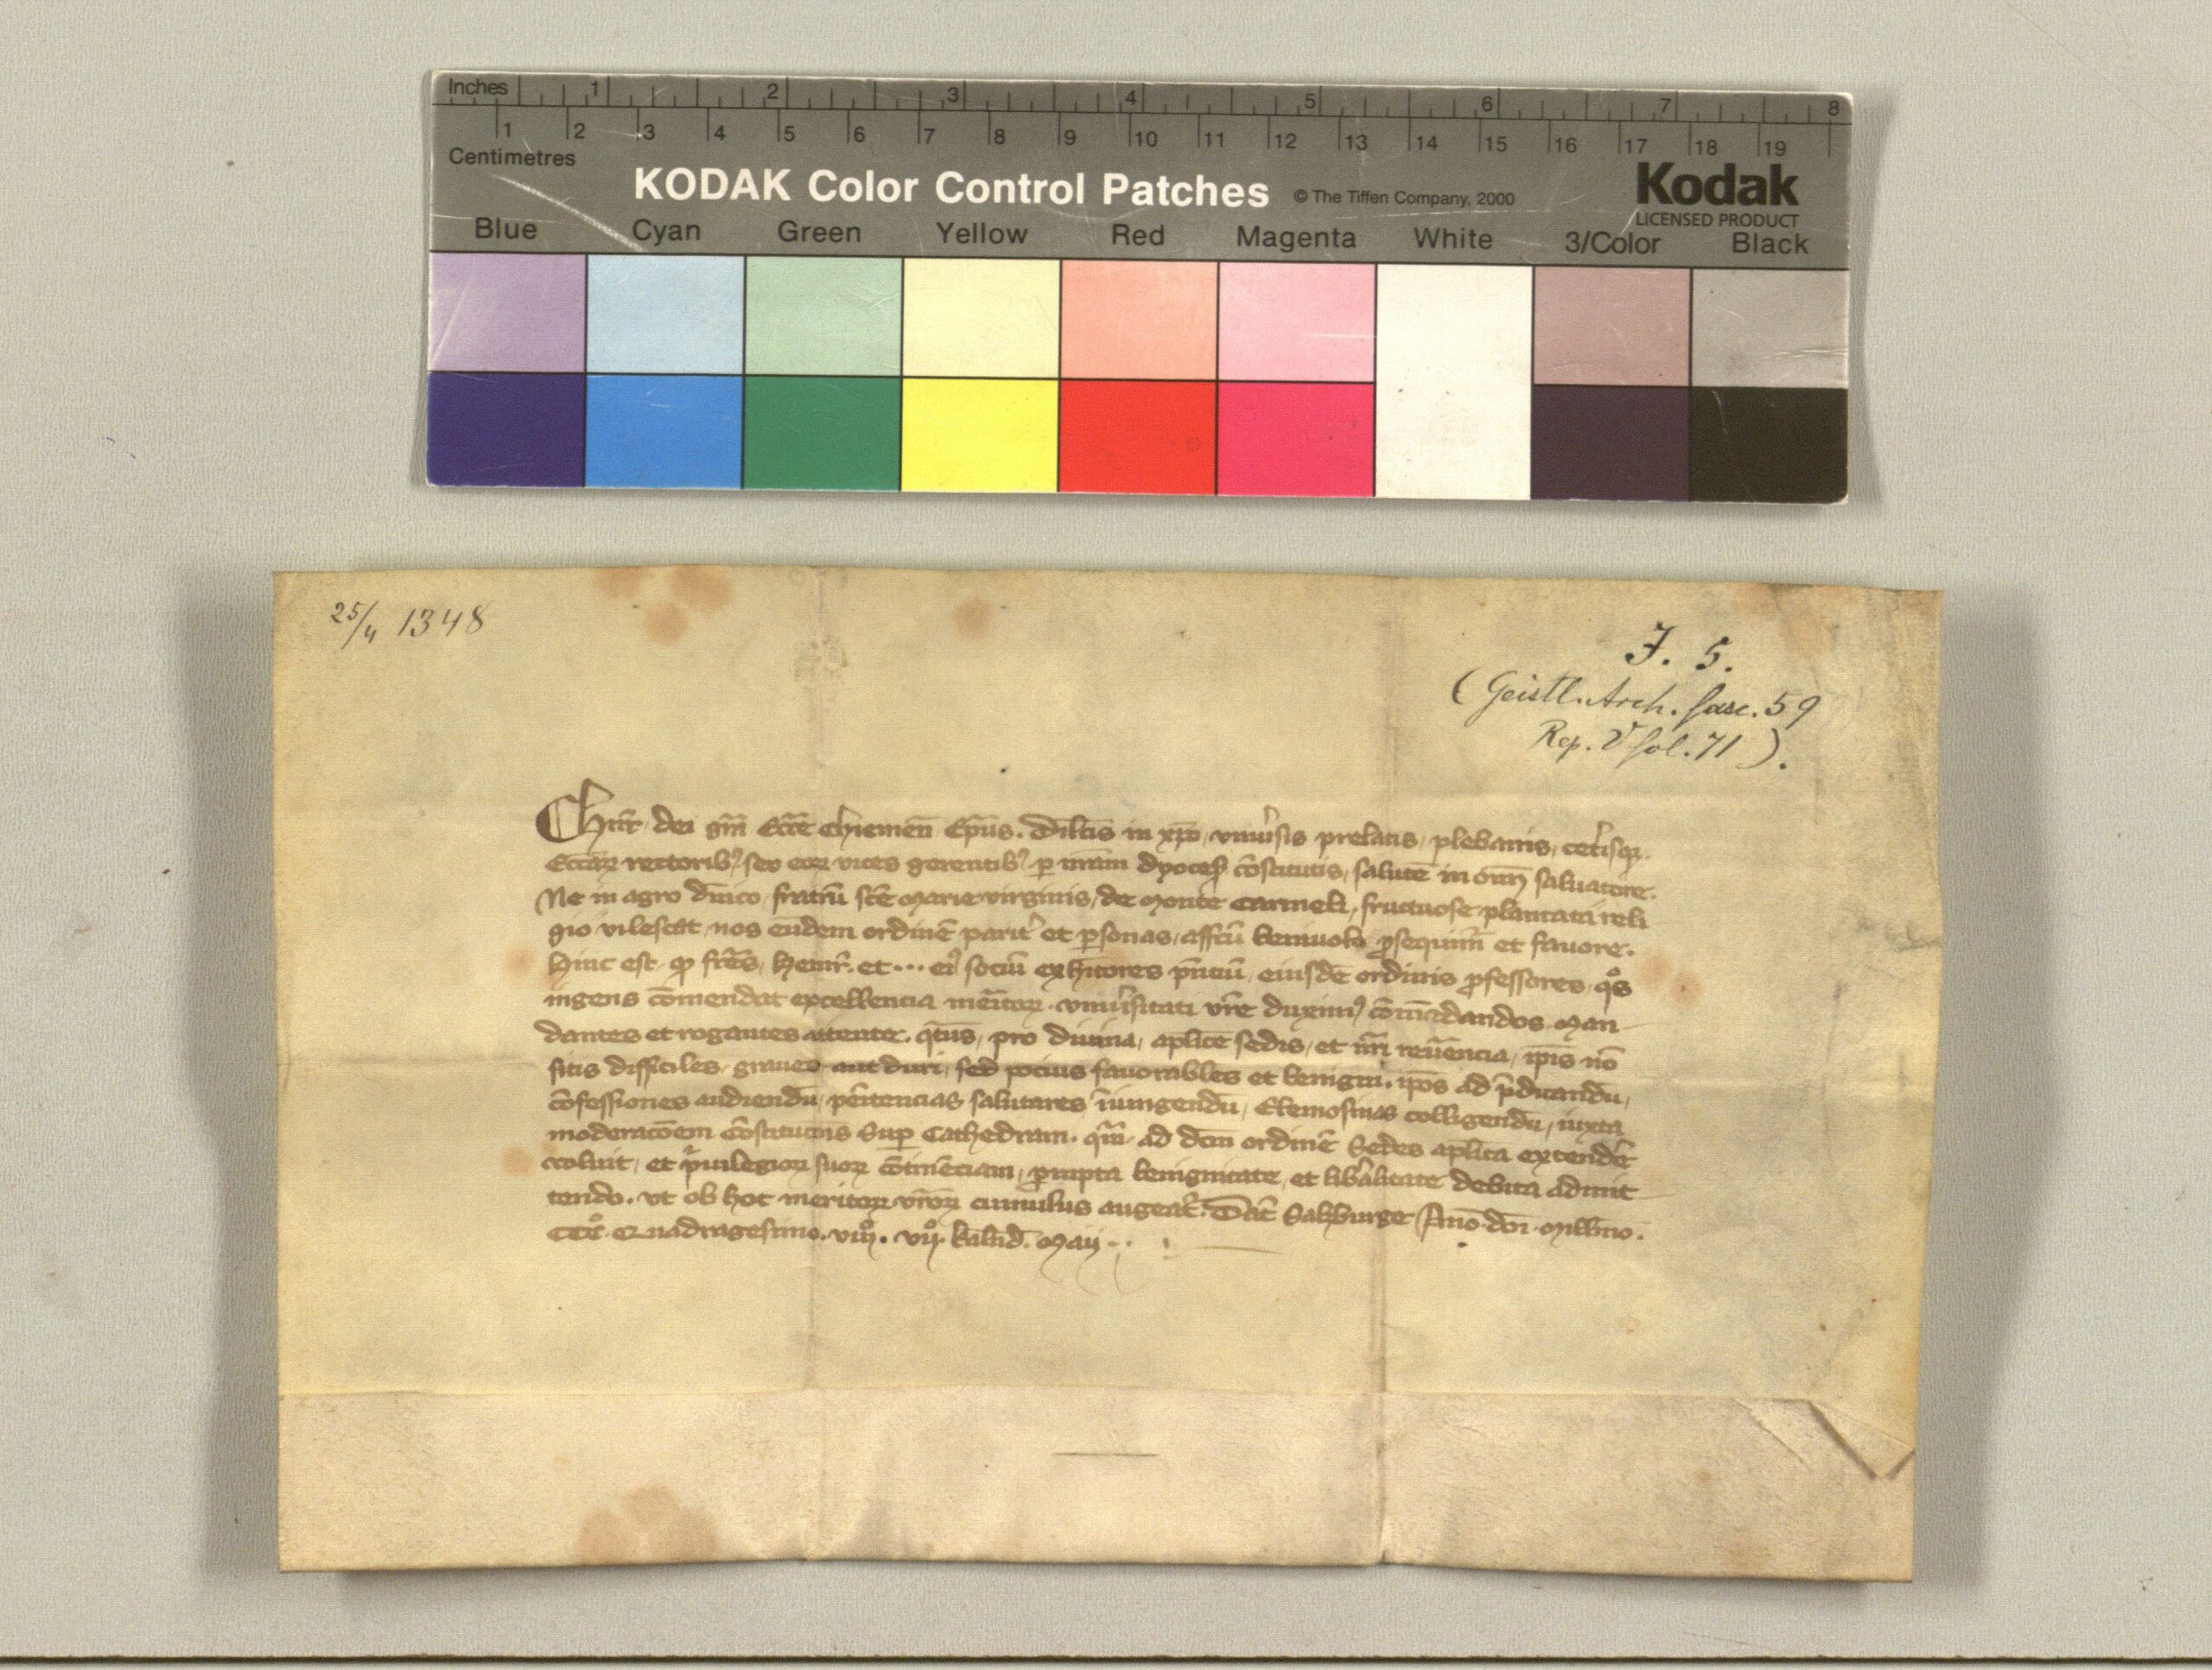 Inches 1 2 3 4 5 6 7 8
1 2 3 4 5 6 7 8 9 10 11 12 13 14 15 16 17 18 19
Centimetres
KODAK Color Control Patches © The Tiffen Company, 2000 Kodak
LICENSED PRODUCT
Blue Cyan Green Yellow Red Magenta White 3/Color Black
25/4 1348
J. 5.
(Geistl. Arch. fasc. 59
Rep. V fol. 71).
dei gr̄a Ecc̄e chiemen̄ Ep̄us. Dilc̄is in xp̄o, vniu͛sis prelatis, plebanis, cet͛isqꝫ
Ecc̄aꝝ rectoribꝰ, seo eoꝝ vices gerentibꝰ ꝑ nr̄am dyoces̄ cōstitutis, salutē in om̄ saluatore.
Ne in agro dn̄ico, fratrū sc̄e Marie virginis, de Monte carmeli, fructuose plantata reli
gio vilescat, nos eūdem ordinē parit͛ et ꝑsonas, affc̄u beniuolo ꝓsequim̄ et fauore.
Hinc est, ꝙ fr̄es, Heinr̄. et ... eiꝰ sociū exhitores p̄ntiū, eiusdē ordinis ꝓfessores, qͦs
ingens cōmendat excellencia meritoꝝ, vniu͛sitati vr̄e duximꝰ cōmēdandos. Man
dantes et rogantes attente. qt̄us, pro diuina, aplice sedis, et nr̄i reuēencia, ip̄is nō
sitis difficiles, graues aut duri, sed pocius fauorabiles et benigni. ip̄os ad p̄dicandū,
cōfessiones audiendū, penitencias salutares iniūgendū, Elemosinas colligendū, iuxta
moderacōem cōstitucōis Suꝑ Cathedram. qm̄ ad dc̄m ordinē Sedes aplica extendē
voluit, et p͛uilegioꝝ suoꝝ cōtinēciam, ꝓmpta benignitate, et lib͛alitate debita admit
tendo. vt ob hoc meritoꝝ vr̄oꝝ cumulus augeat͛. Dat̄ Salzburge Anō dn̄i Millmo.
CCCͦ. Quadragesimo. viijͦ. vijͦ. kalnd̄. Maij..